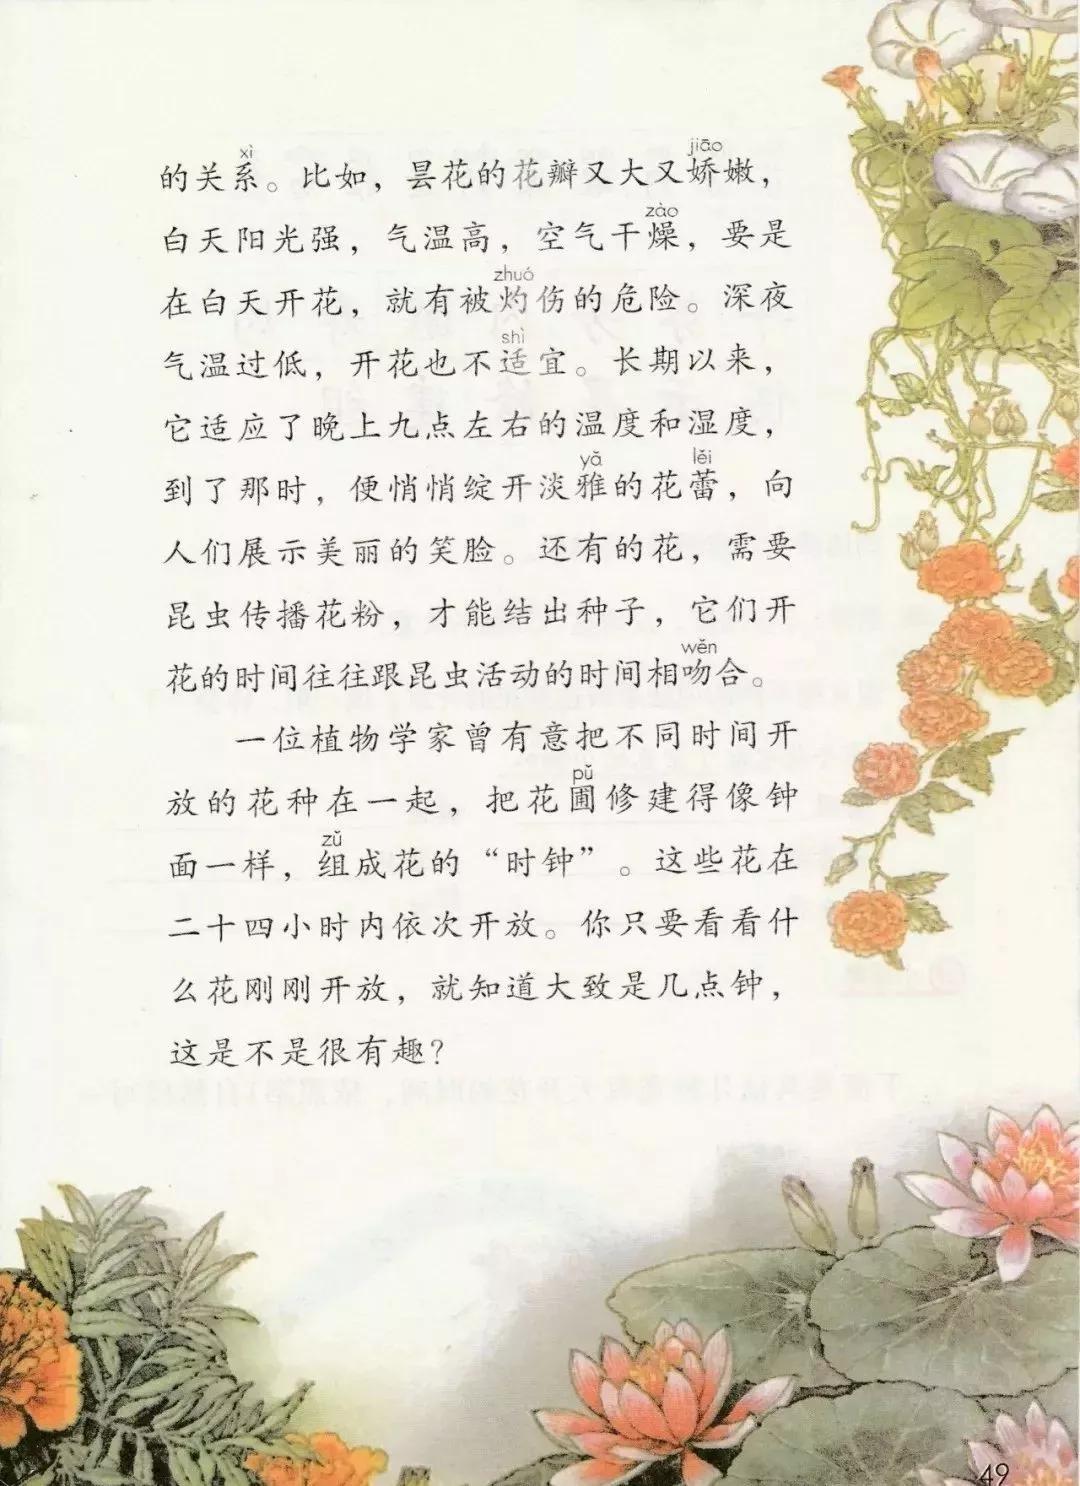 xì jiāo
的关系。比如，昙花的花瓣又大又娇嫩，
zào
白天阳光强，气温高，空气干燥，要是
zhuó
在白天开花，就有被灼伤的危险。深夜
shì
气温过低，开花也不适宜。长期以来，
它适应了晚上九点左右的温度和湿度，
yǎ lěi
到了那时，便悄悄绽开淡雅的花蕾，向
人们展示美丽的笑脸。还有的花，需要
昆虫传播花粉，才能结出种子，它们开
wěn
花的时间往往跟昆虫活动的时间相吻合。
一位植物学家曾有意把不同时间开
pǔ
放的花种在一起，把花圃修建得像钟
zǔ
面一样，组成花的“时钟”。这些花在
二十四小时内依次开放。你只要看看什
么花刚刚开放，就知道大致是几点钟，
这是不是很有趣？
49